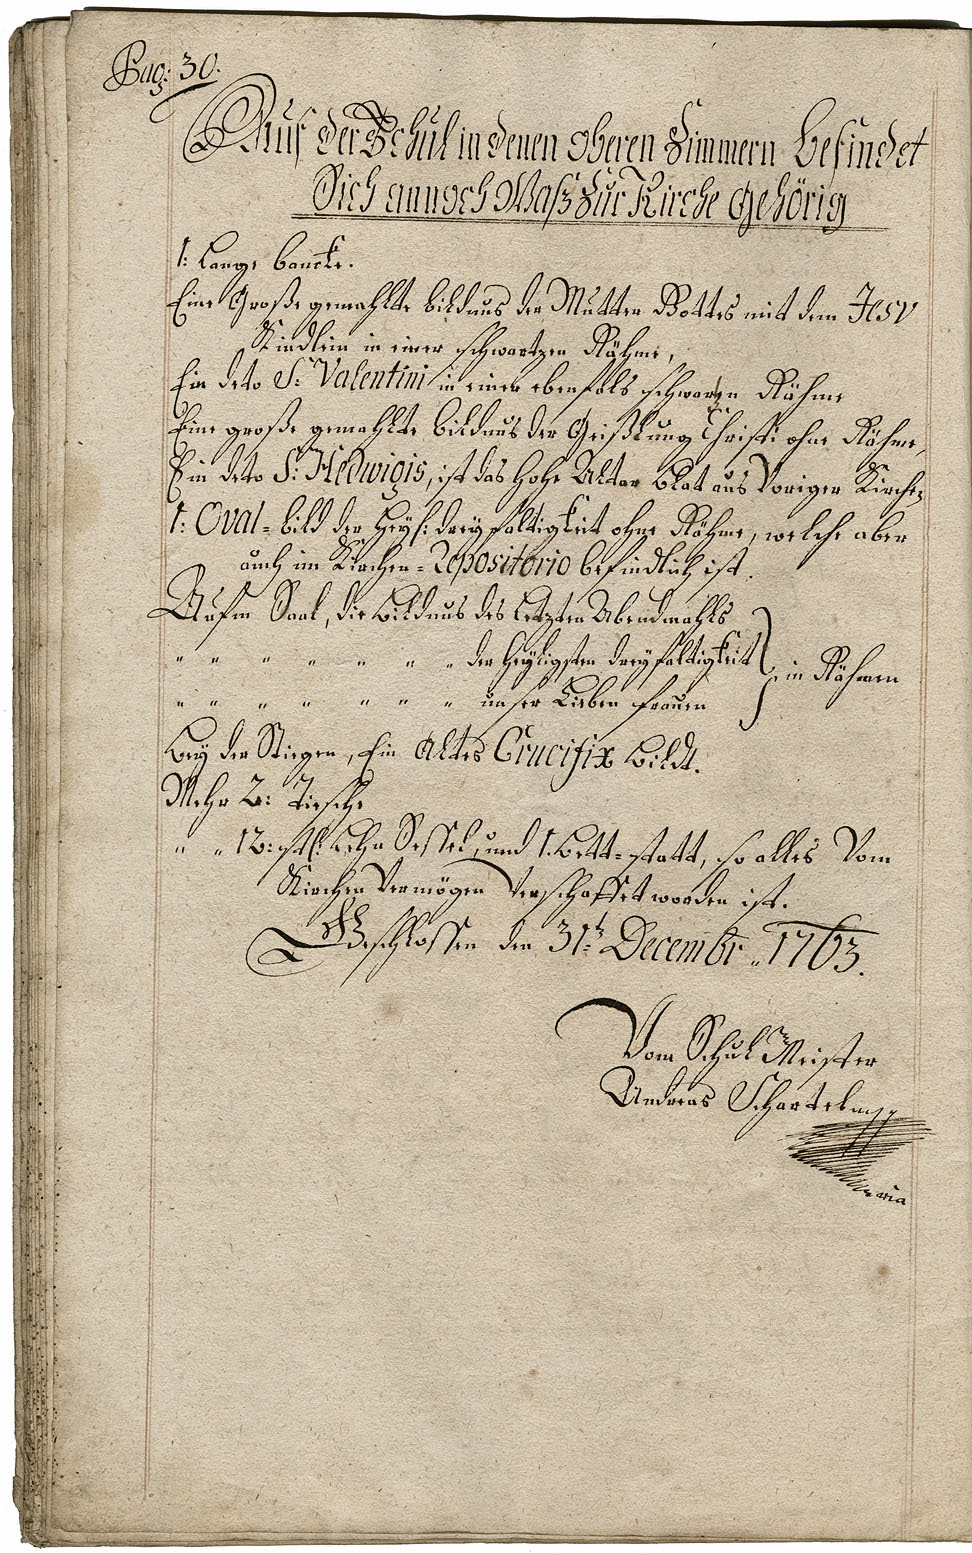 Pag: 30.
Auf der Schul in denen oberen Zimmern befindet
Sich annoch Waß zur Kirche gehörig
1: Lange banckh.
Eine Große gemahlte bildnus der Mutter Gottes mit dem Jesu
Kindlein in einer schwartzen Rähme,
Ein deto S: Valentini in einer ebenfals schwarzen Rähme
Eine große gemahlte bildnus der Geißlung Christi ohne Rähme,
Ein deto S: Hedwigis, ist das Hohe Altar blat aus Voriger Kirche,
1: Oval-bild der Heyl: dreyfaltigkeit ohne Rähme, welche aber
auch im Kirchen-Repositorio befindlich ist.
Aufm Saal, die Bildnus des Letzten Abendmahls
" " " " " " " der Heyligsten dreyfaltigkeit
" " " " " " " unser Lieben frauen
in Rähmen
Bey der Stiegen, Ein Altes Crucifix Bildt.
Mehr 2: Tische
" " 12: Lehn Sessel, und 1. Bett-statt, so alles Vom
Kirchen Vermögen Verschaffet worden ist.
Geschlossen den 31t Decembr: 1763.
Vom Schul Meister
Andreas